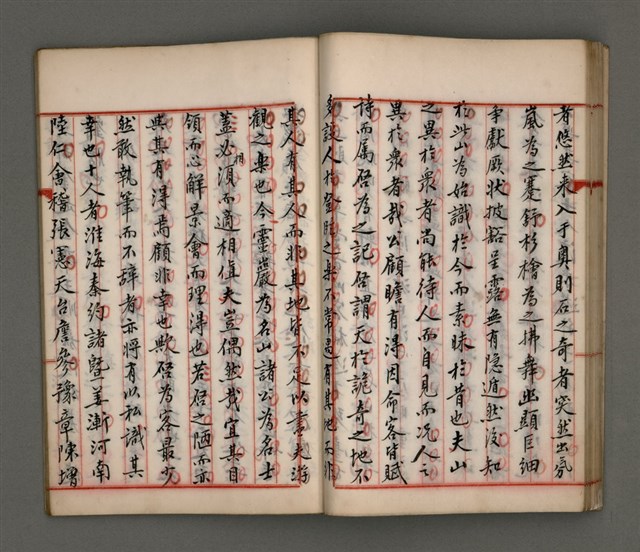 者悠然來入于奧則石之奇者突然出氛
嵐為之蔓舒杉檜為之拂舞幽顯巨細
爭獻厥狀披豁呈露無有隱遁然後知
於此山為始識於今而素昧於昔也夫山
之異於衆者尚能待人而自見而况人之
異於衆者哉公顧瞻有得因命客皆賦
詩而属啓為之記啓謂天於詭奇之地不
多設人於登臨之樂不常遇有其地而非
其人有其人而非其地皆不足以盡夫游
觀之樂也今靈巖為名山諸公為名士
蓋必相湏而適相值夫豈偶然哉宜其目
領而心解景會而理得也若啓之陋而亦
與其有得焉顧非幸也歟啓為客最少
然敢執筆而不辞者亦將有以私識其
幸也十人者淮海秦約諸暨姜漸河南
陸仁會稽張憲天台詹參豫章陳增